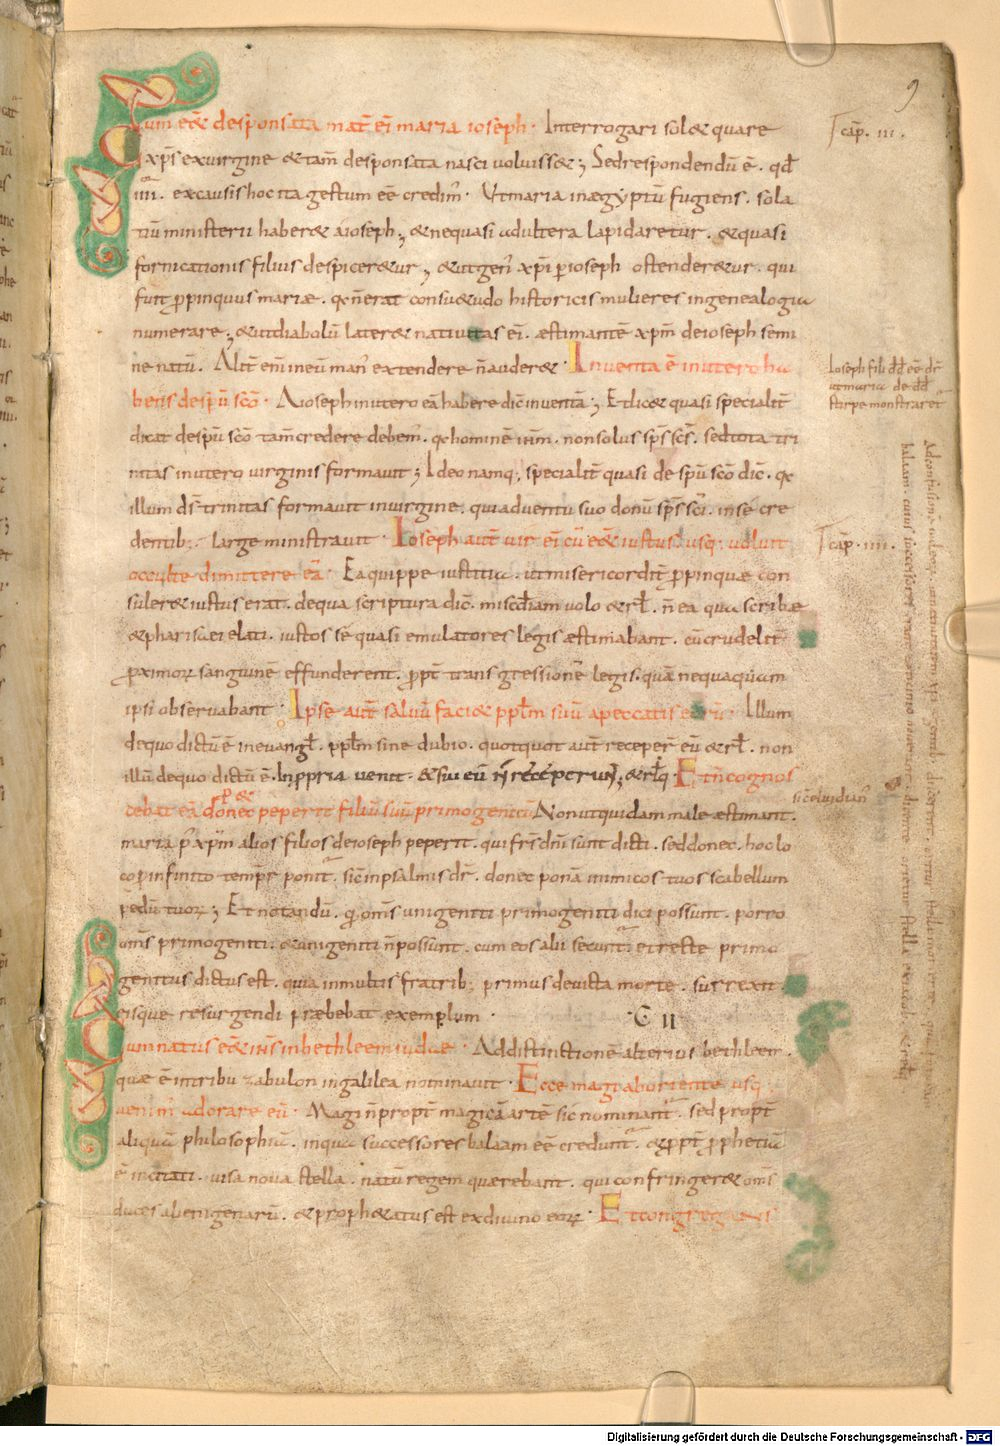 9
Cum eēt desponsata mat̄ ei᷒ maria ioseph · Interrogari solet quare
xp̄s exuirgine & tam̄ desponsata nasci uoluisset; Sedrespondendū ē . qđ
iiii . excausis hoc ita gestum eē credim᷒ · Utmaria inaegyptū fugiens . sola
tiū ministerii haberet aioseph ; & nequasi adultera lapidaretur . & quasi
fornicationis filius despiceretur ; & utgen᷒ xp̄i p ioseph ostenderetur . qui
fuit ppinquus mariae . qꝛ n̄ erat consuetudo historicis mulieres ingenealogia
numerare ; & utdiabolū lateret natiuitas ei᷒ . aestimantē xp̄m deioseph semi
ne natū . Alit̄ eni᷒ ineū man᷒ extendere n̄ auderet · Inuenta ē inutero ha
bens despū sc̄o · Aioseph inutero eā habere dic̄ inuentā ; Et licet quasi specialit̄
dicat despū sc̄o tam̄ credere debem᷒ . qꝛ hominē it̄m . nonsolus sp̄s sc̄s . sedtota tri
nitas inutero uirginis formauit ; Ideo namq; specialit̄ quasi de spū sc̄o dic̄ . qꝛ
illum d̄s trinitas formauit inuirgine . quiaduentu suo donū sp̄s sc̄i . inse cre
dentib; large ministrauit · Ioseph aut̄ uir ei᷒ cū eēt iustus . usq; uoluit
occulte dimittere eā · Ea quippe iustitia . ut misericordit̄ ppinquae con
suleret iustus erat . dequa scriptura dic̄ . miscđiam uolo & rł . n̄ ea qua scribae
& pharisaei elati . iustos se quasi emulatores legis aestimabant . cū crudelit̄
proximorꝛ sanguinē effunderent . ppt̄ transgressionē legis . quā nequaquam
ipsi obseruabant · Ipse aut̄ saluū faciet pplm suū apeccatis eorū · Illum
dequo dictū ē ineuangł . pplm sine dubio . quotquot aut̄ receper̄ eū & rł . non
illū dequo dictū ē . Inppria uenit . & sui eū n̄ receperunt & rłq · Et n̄ cognos
cebat eā donec peperit filiū suū primogenitū Nonutquidam male aestimant .
maria p᷒ xp̄m alios filios deioseph peperit . qui frs̄ dn̄i sunt dicti . sed donec . hoc lo
co pinfinito tempr̄ ponit᷒ . sic̄ inpsalmis dr̄ . donec ponā inimicos tuos scabellum
pedū tuorꝛ ; Et notandū . qđ om̄s unigeniti primogeniti dici possunt . porro
om̄s primogeniti . & unigeniti n̄ possunt . cum eos alii secunt᷒ . et recte primo
genitus dictus est . quia inmultis fratrib; primus deuicta morte . surrexit
eisque resurgendi praebebat exemplum · C II
Cum natus eēt ihs̄ inbethleem iudae · Addistinctionē alterius bethleem .
quae ē intribu zabulon ingalilea nominauit · Ecce magi aboriente usq;
uenim᷒ adorare eū · Magi n̄ propt̄ magicā artē sic nominant᷒ . sed propt̄
aliquā philosophiā . inqua successores balaam eē credunt᷒ . & ppt̄ pphetia
ē incitati . uisa noua stella . natū regem quaerebant . qui confringeret om̄s
duces alienigenarū . & prophetatus est exdiuino eorꝛ · Et congregans
cap̄ . iii .
Ioseph fili dđ eē dr̄
ut maria de dđ
stirpe monstraret᷒
cap̄ . iiii .
Digitalisierung gefördert durch die Deutsche Forschungsgemeinschaft - DFG